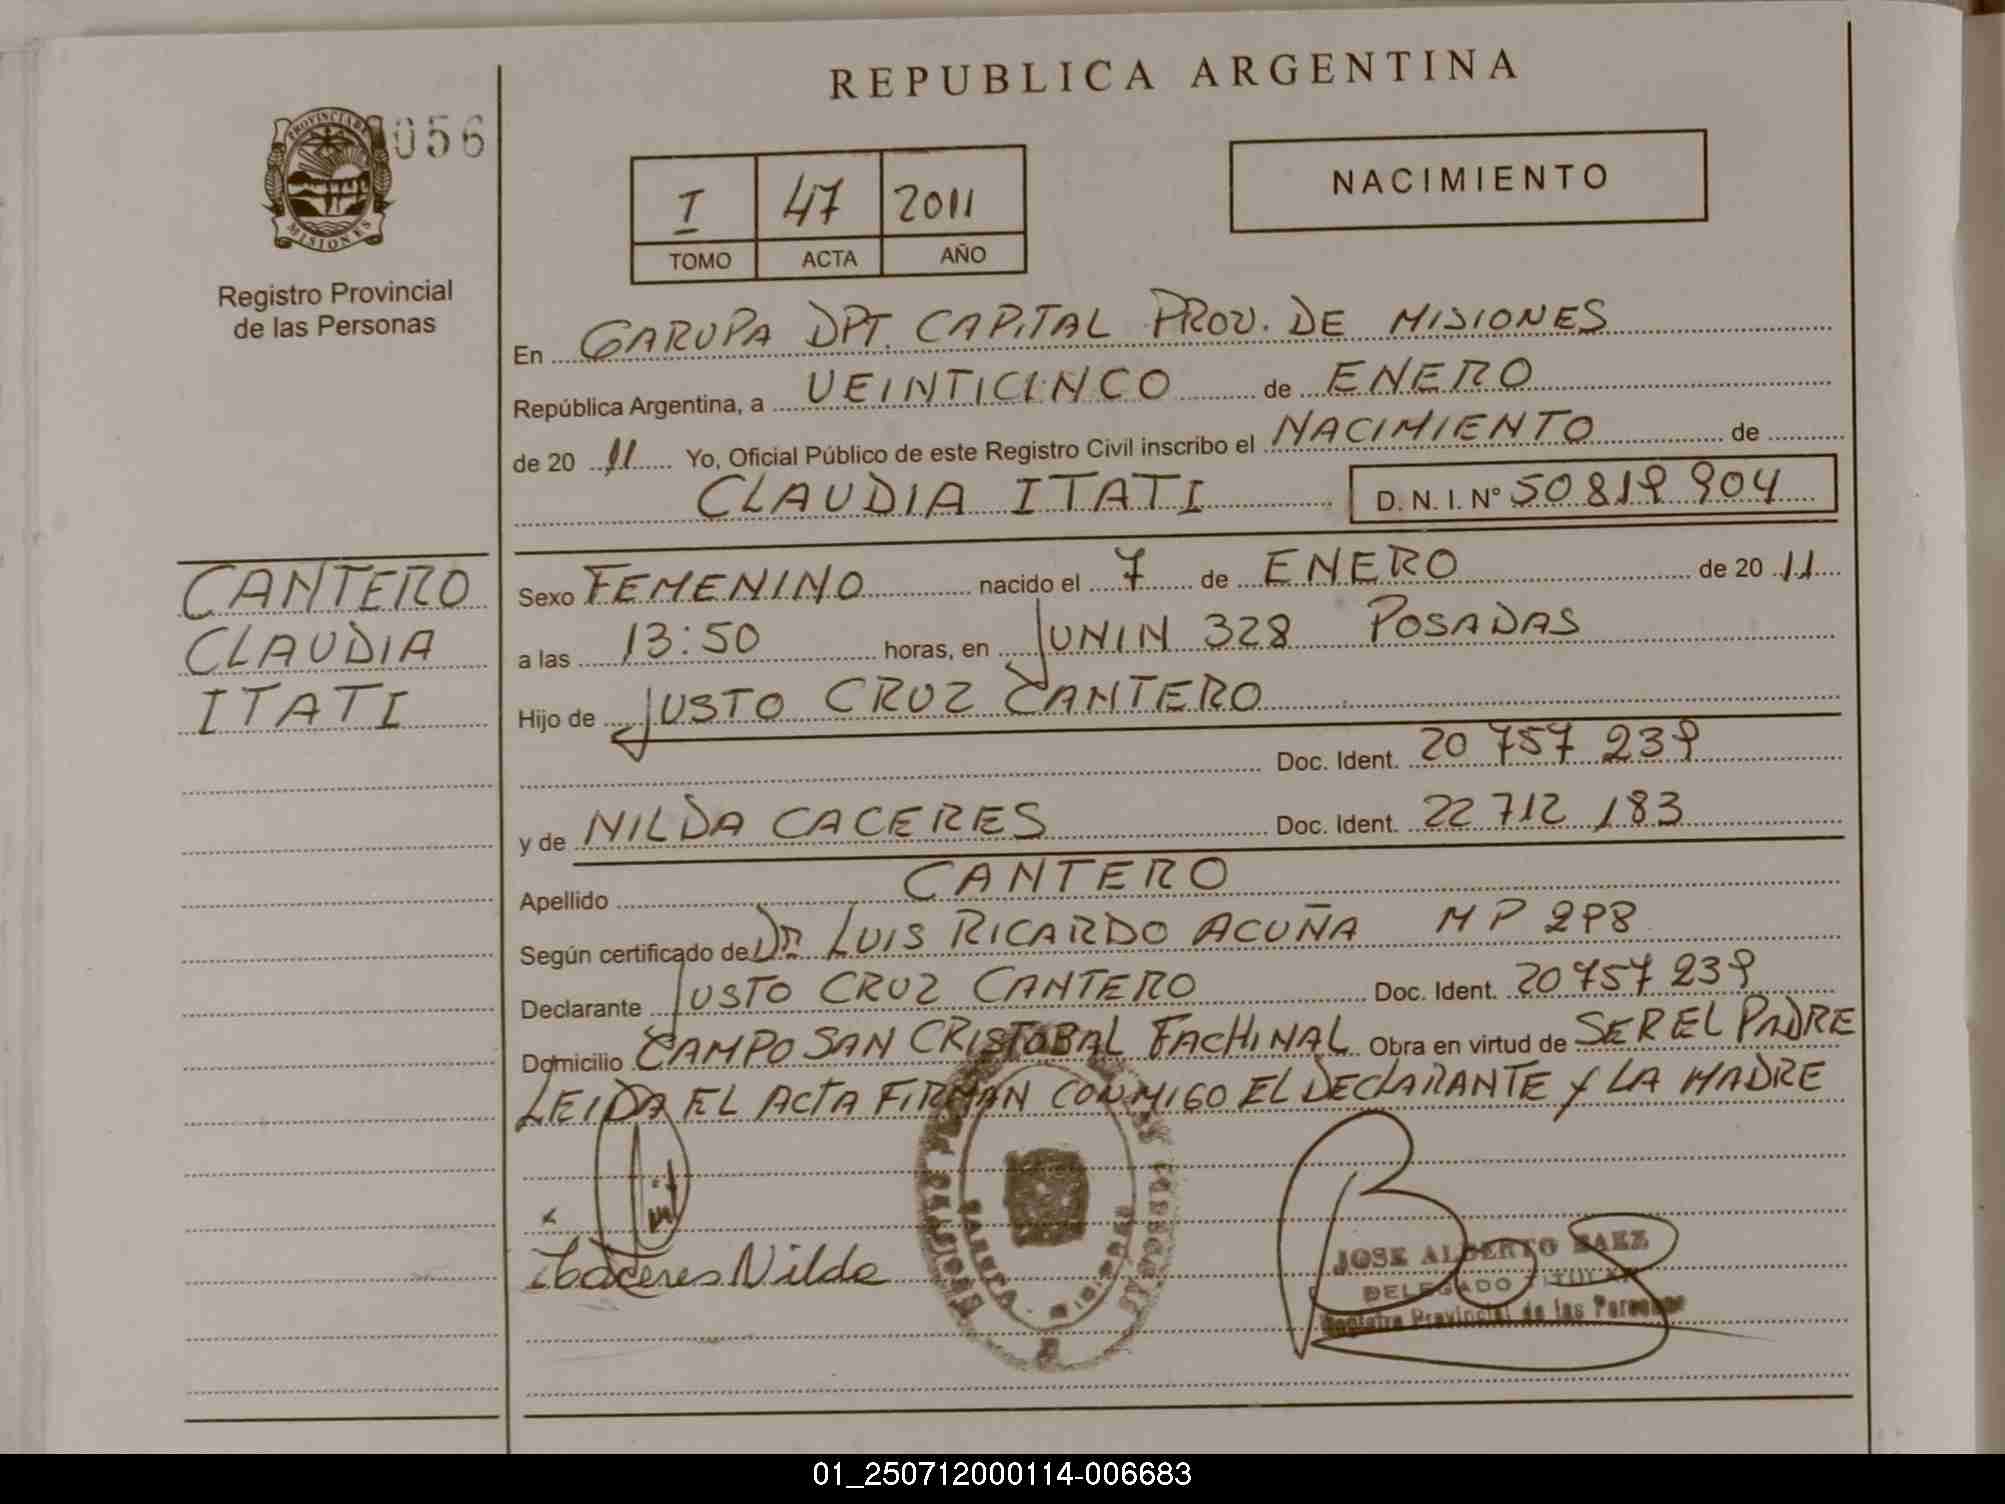 REPUBLICA ARGENTINA
PROVINCIA DE MISIONES
056
Registro Provincial
de las Personas
I 47 2011
TOMO ACTA AÑO
NACIMIENTO
En GARUPA DPT. CAPITAL PROV. DE MISIONES
República Argentina, a VEINTICINCO de ENERO
de 20 11 Yo, Oficial Público de este Registro Civil inscribo el NACIMIENTO de
CLAUDIA ITATI D. N. I. N° 50 819 904
CANTERO
CLAUDIA
ITATI
Sexo FEMENINO nacido el 7 de ENERO de 20 11
a las 13:50 horas, en JUNIN 328 POSADAS
Hijo de JUSTO CRUZ CANTERO
Doc. Ident. 20 757 239
y de NILDA CACERES Doc. Ident. 22 712 183
Apellido CANTERO
Según certificado de Dr. LUIS RICARDO ACUÑA MP 298
Declarante JUSTO CRUZ CANTERO Doc. Ident. 20 757 239
Domicilio CAMPO SAN CRISTOBAL FACHINAL Obra en virtud de SER EL PADRE
LEIDA EL ACTA FIRMAN CONMIGO EL DECLARANTE Y LA MADRE
x
Caceres Nilda
JOSE ALBERTO BAEZ
DELEGADO TITULAR
Registro Provincial de las Personas
01_250712000114-006683